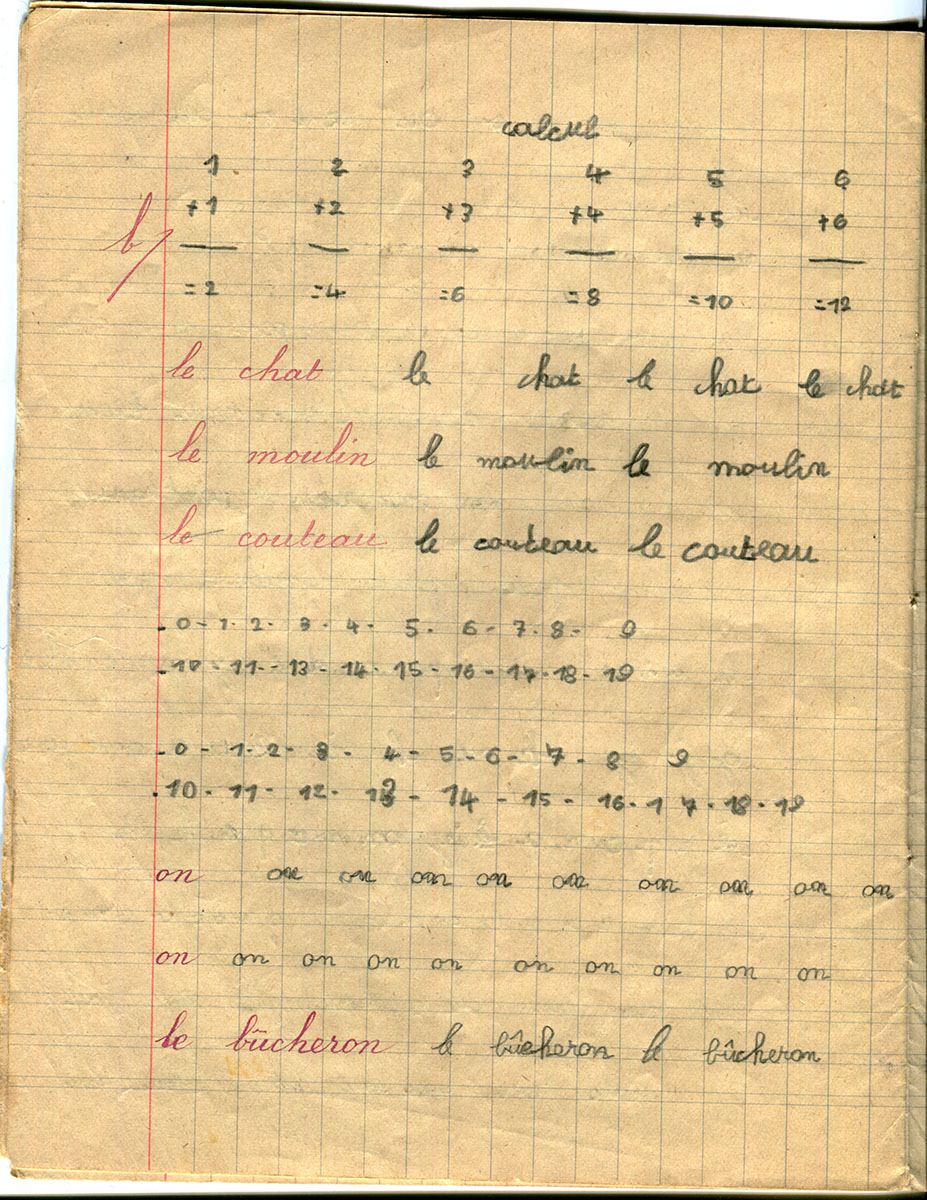 calcul
1 2 3 4 5 6
+1 +2 +3 +4 +5 +6
b
=2 =4 =6 =8 =10 =12
le chat le chat le chat le chat
le moulin le moulin le moulin
le couteau le couteau le couteau
. 0 - 1 - 2 - 3 - 4 - 5 - 6 - 7 - 8 - 9
. 10 - 11 - 13 - 14 - 15 - 16 - 17 - 18 - 19
. 0 - 1 - 2 - 3 - 4 - 5 - 6 - 7 - 8 9
. 10 - 11 - 12 - 13 - 14 - 15 - 16 - 17 - 18 - 19
on on on on on on on on on on
on on on on on on on on on on
le bûcheron le bûcheron le bûcheron